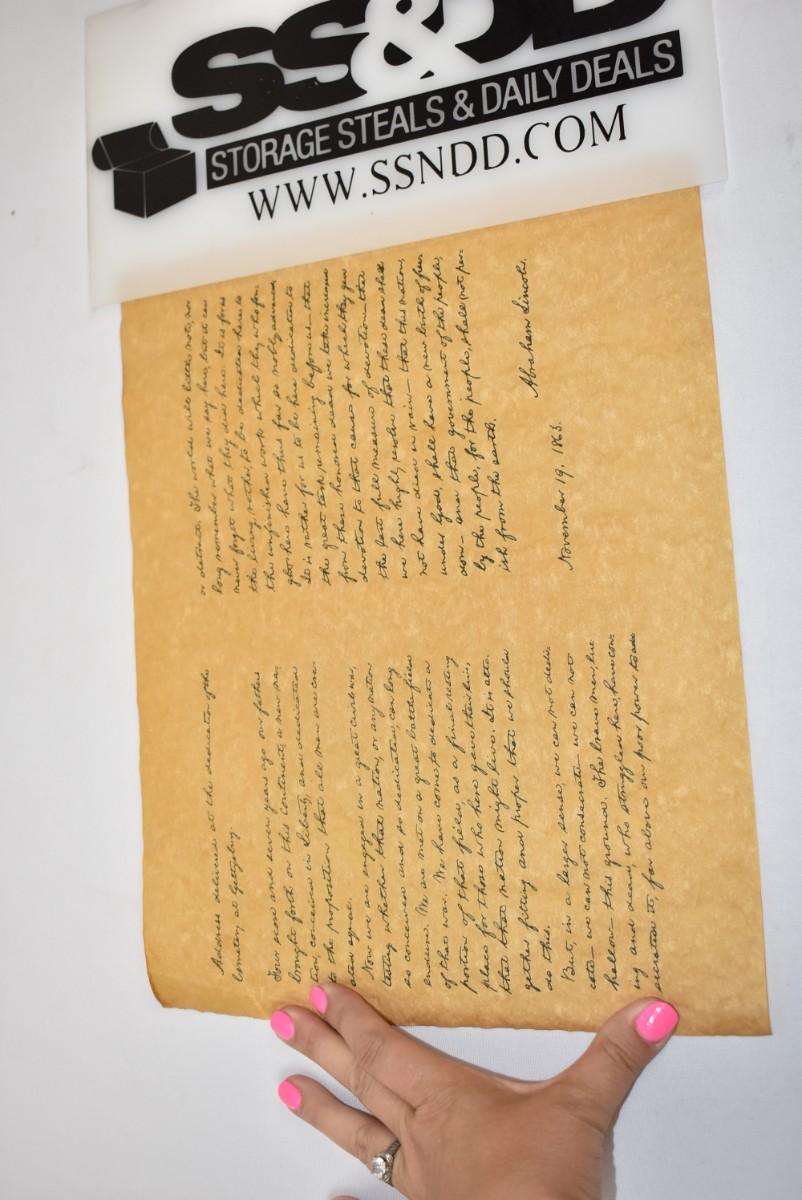 SS&DD
STORAGE STEALS & DAILY DEALS
WWW.SSNDD.COM
Address delivered at the dedication of the
Cemetery at Gettysburg.
Four score and seven years ago our fathers
brought forth on this continent, a new na-
tion, conceived in Liberty, and dedicated
to the proposition that all men are cre-
ated equal.
Now we are engaged in a great civil war,
testing whether that nation, or any nation
so conceived and so dedicated, can long
endure. We are met on a great battle-field
of that war. We have come to dedicate a
portion of that field, as a final resting
place for those who here gave their lives,
that that nation might live. It is alto-
gether fitting and proper that we should
do this.
But, in a larger sense, we can not dedi-
cate— we can not consecrate— we can not
hallow— this ground. The brave men, liv-
ing and dead, who struggled here, have con-
secrated it, far above our poor power to add
or detract. The world will little note, nor
long remember what we say here, but it can
never forget what they did here. It is for us
the living, rather, to be dedicated here to
the unfinished work which they who fou-
ght here have thus far so nobly advanced.
It is rather for us to be here dedicated to
the great task remaining before us— that
from these honored dead we take increased
devotion to that cause for which they gave
the last full measure of devotion— that
we here highly resolve that these dead shall
not have died in vain— that this nation,
under God, shall have a new birth of free-
dom— and that government of the people,
by the people, for the people, shall not per-
ish from the earth.
Abraham Lincoln.
November 19. 1863.